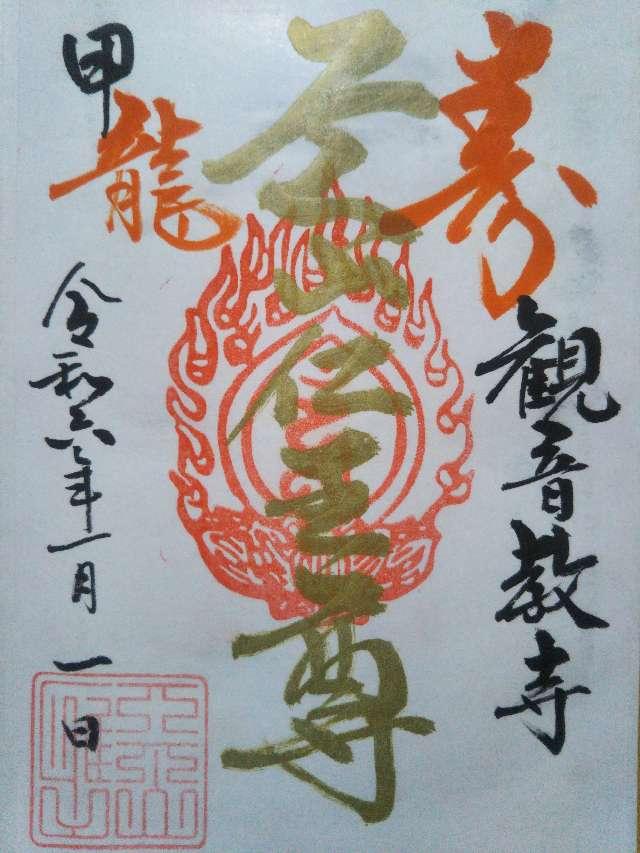 寿
観音教寺
芝山仁王尊
甲龍
令和六年一月一日